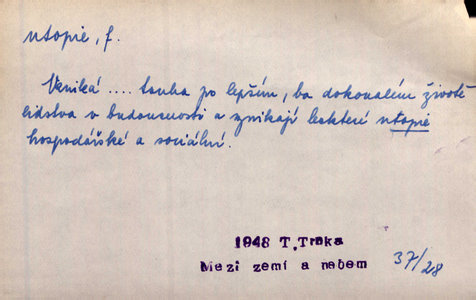 utopie, f.
Vzniká .... touha po lepším, ba dokonalém životě
lidstva v budoucnosti a vznikají leckteré utopie
hospodářské a sociální.
1948 T. Trnka
Mezi zemí a nebem
37/28